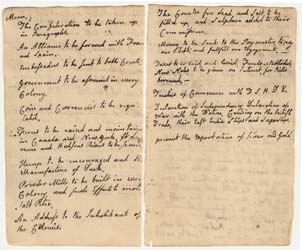 Mem.
The Confederation to be taken up
in Paragraphs.
An Alliance to be formed with France
and Spain.
Embassadors to be sent to both Courts.
Government to be assumed in every
Colony.
Coin and Currencies to be regu
lated.
Forces to be raised and maintained
in Canada and New York. St.
and Hudsons Rivers to be secured.
Hemp to be encouraged and the
Manufacture of Duck.
Powder Mills to be built in every
Colony, and fresh Efforts to make
Salt Petre.
An Address to the Inhabitants of
the Colonies.
The Committee for Lead and Salt to be
filled up, and Sulphur added to their
Commission.
Money to be sent to the Paymaster, to pay
our Debts, and fulfill our Engagements.
Taxes to be laid, and levied, Funds established.
New Notes to be given on Interest, for Bills
borrowed.
Treaties of Commerce with F. S. H. D.
Declaration of Independency, Declaration of
War with the Nation, Cruising on the British
Trade, their East India Ships and Sugar Ships.
prevent the Exportation of Silver and Gold.